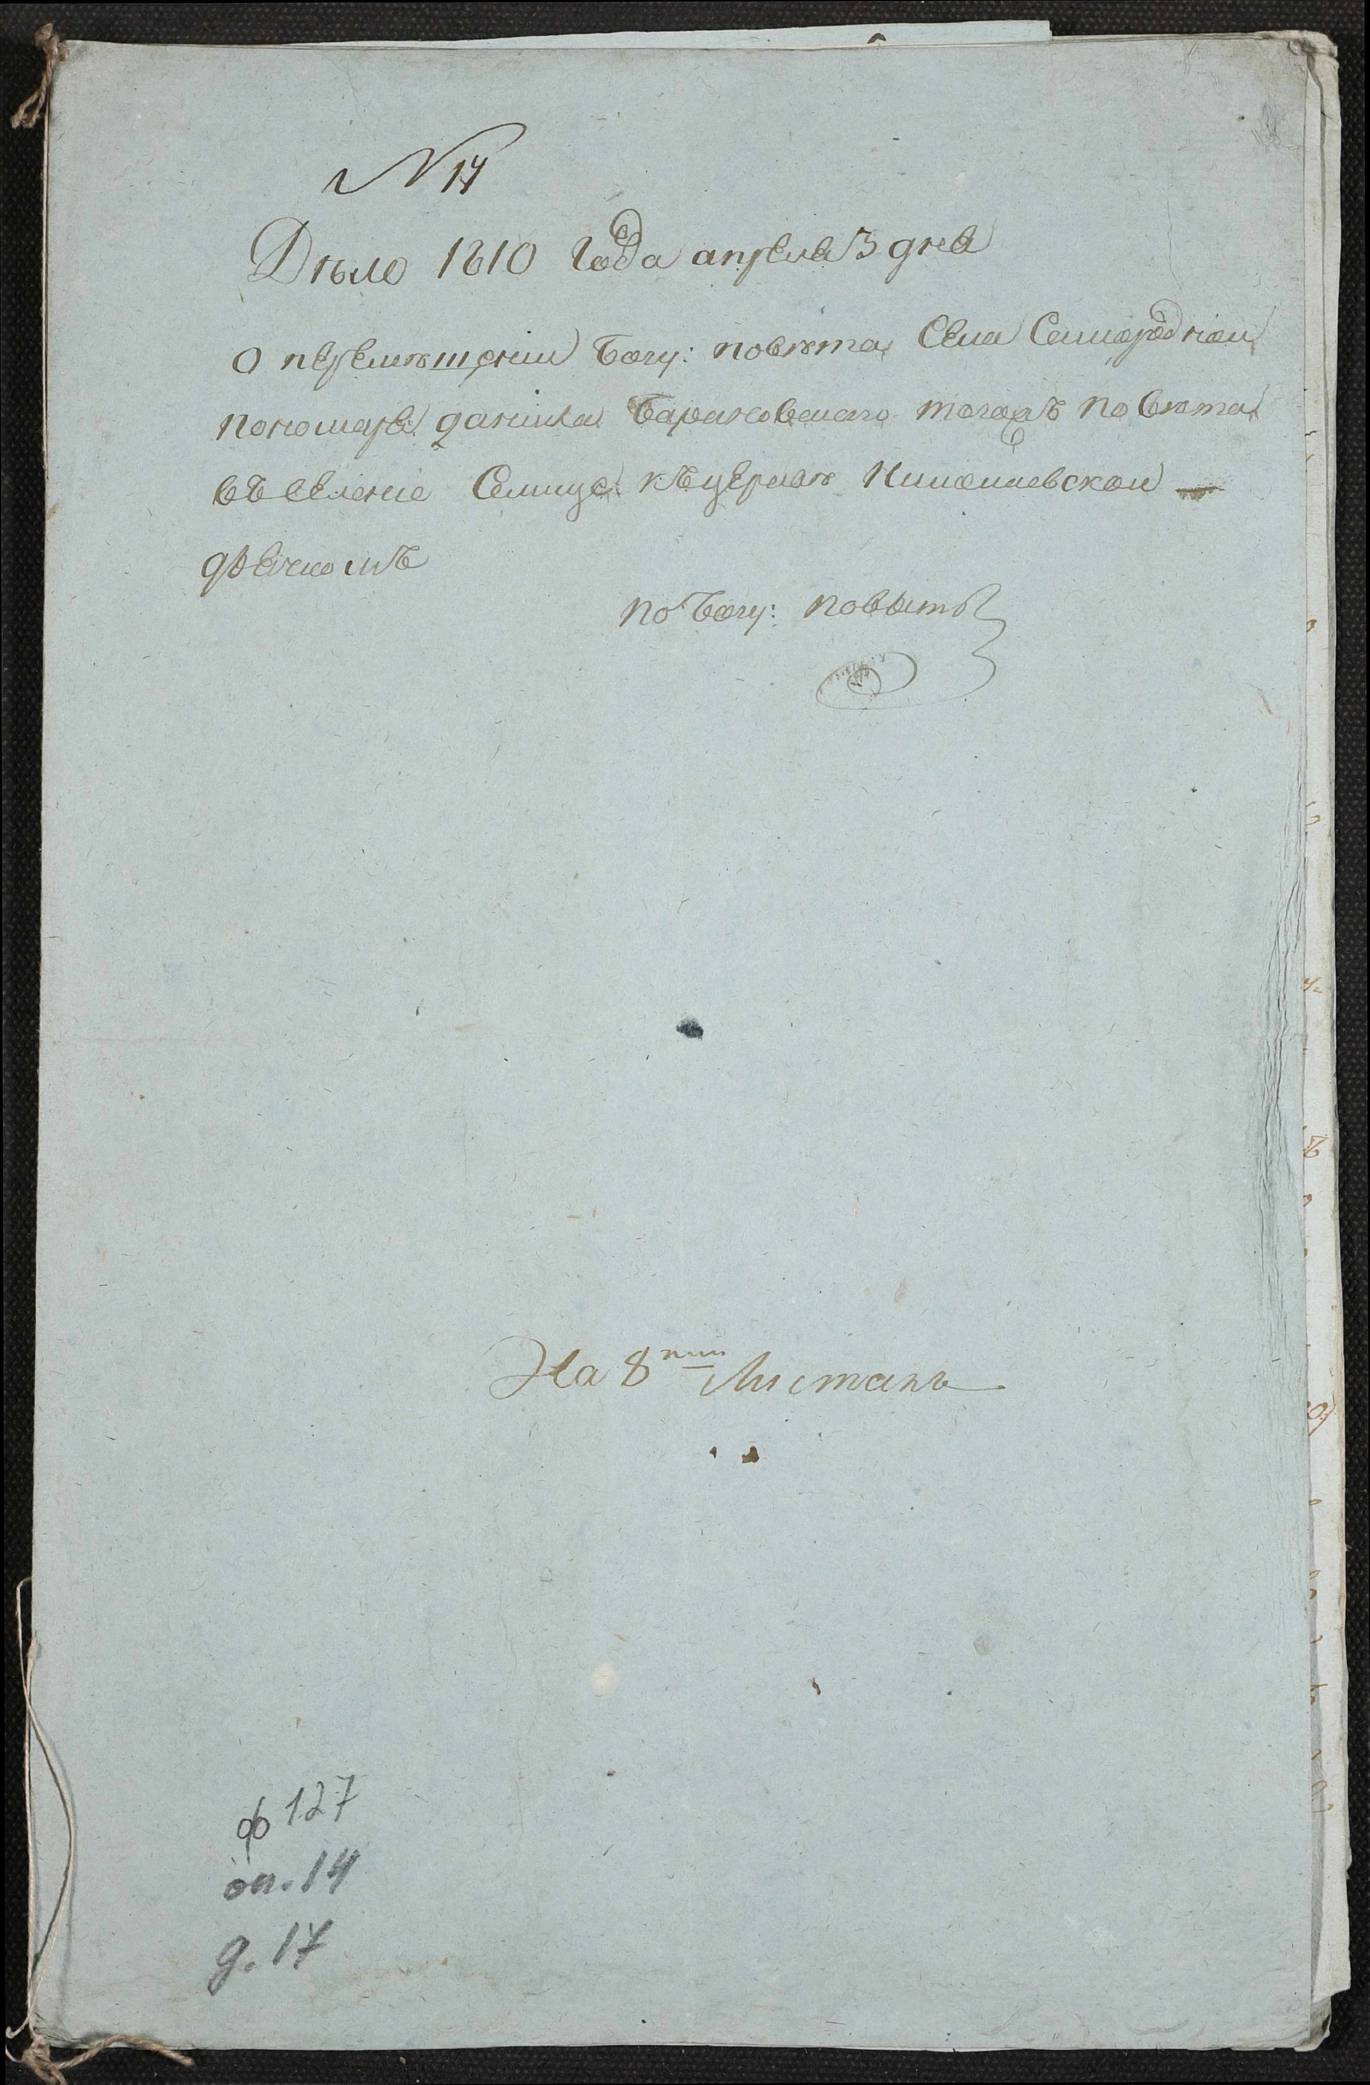 N 17
Дѣло 1810 Года апреля 3 дня
О перемѣщении Богу: повѣта Села Самородкои
пономаря данила Барановскаго тогожъ повѣта
въ селение Селище къ церквѣ Николаевской
дьячкомъ
по Богу: повытью
На 8ми Листахъ
ф 127
оп. 14
д. 17